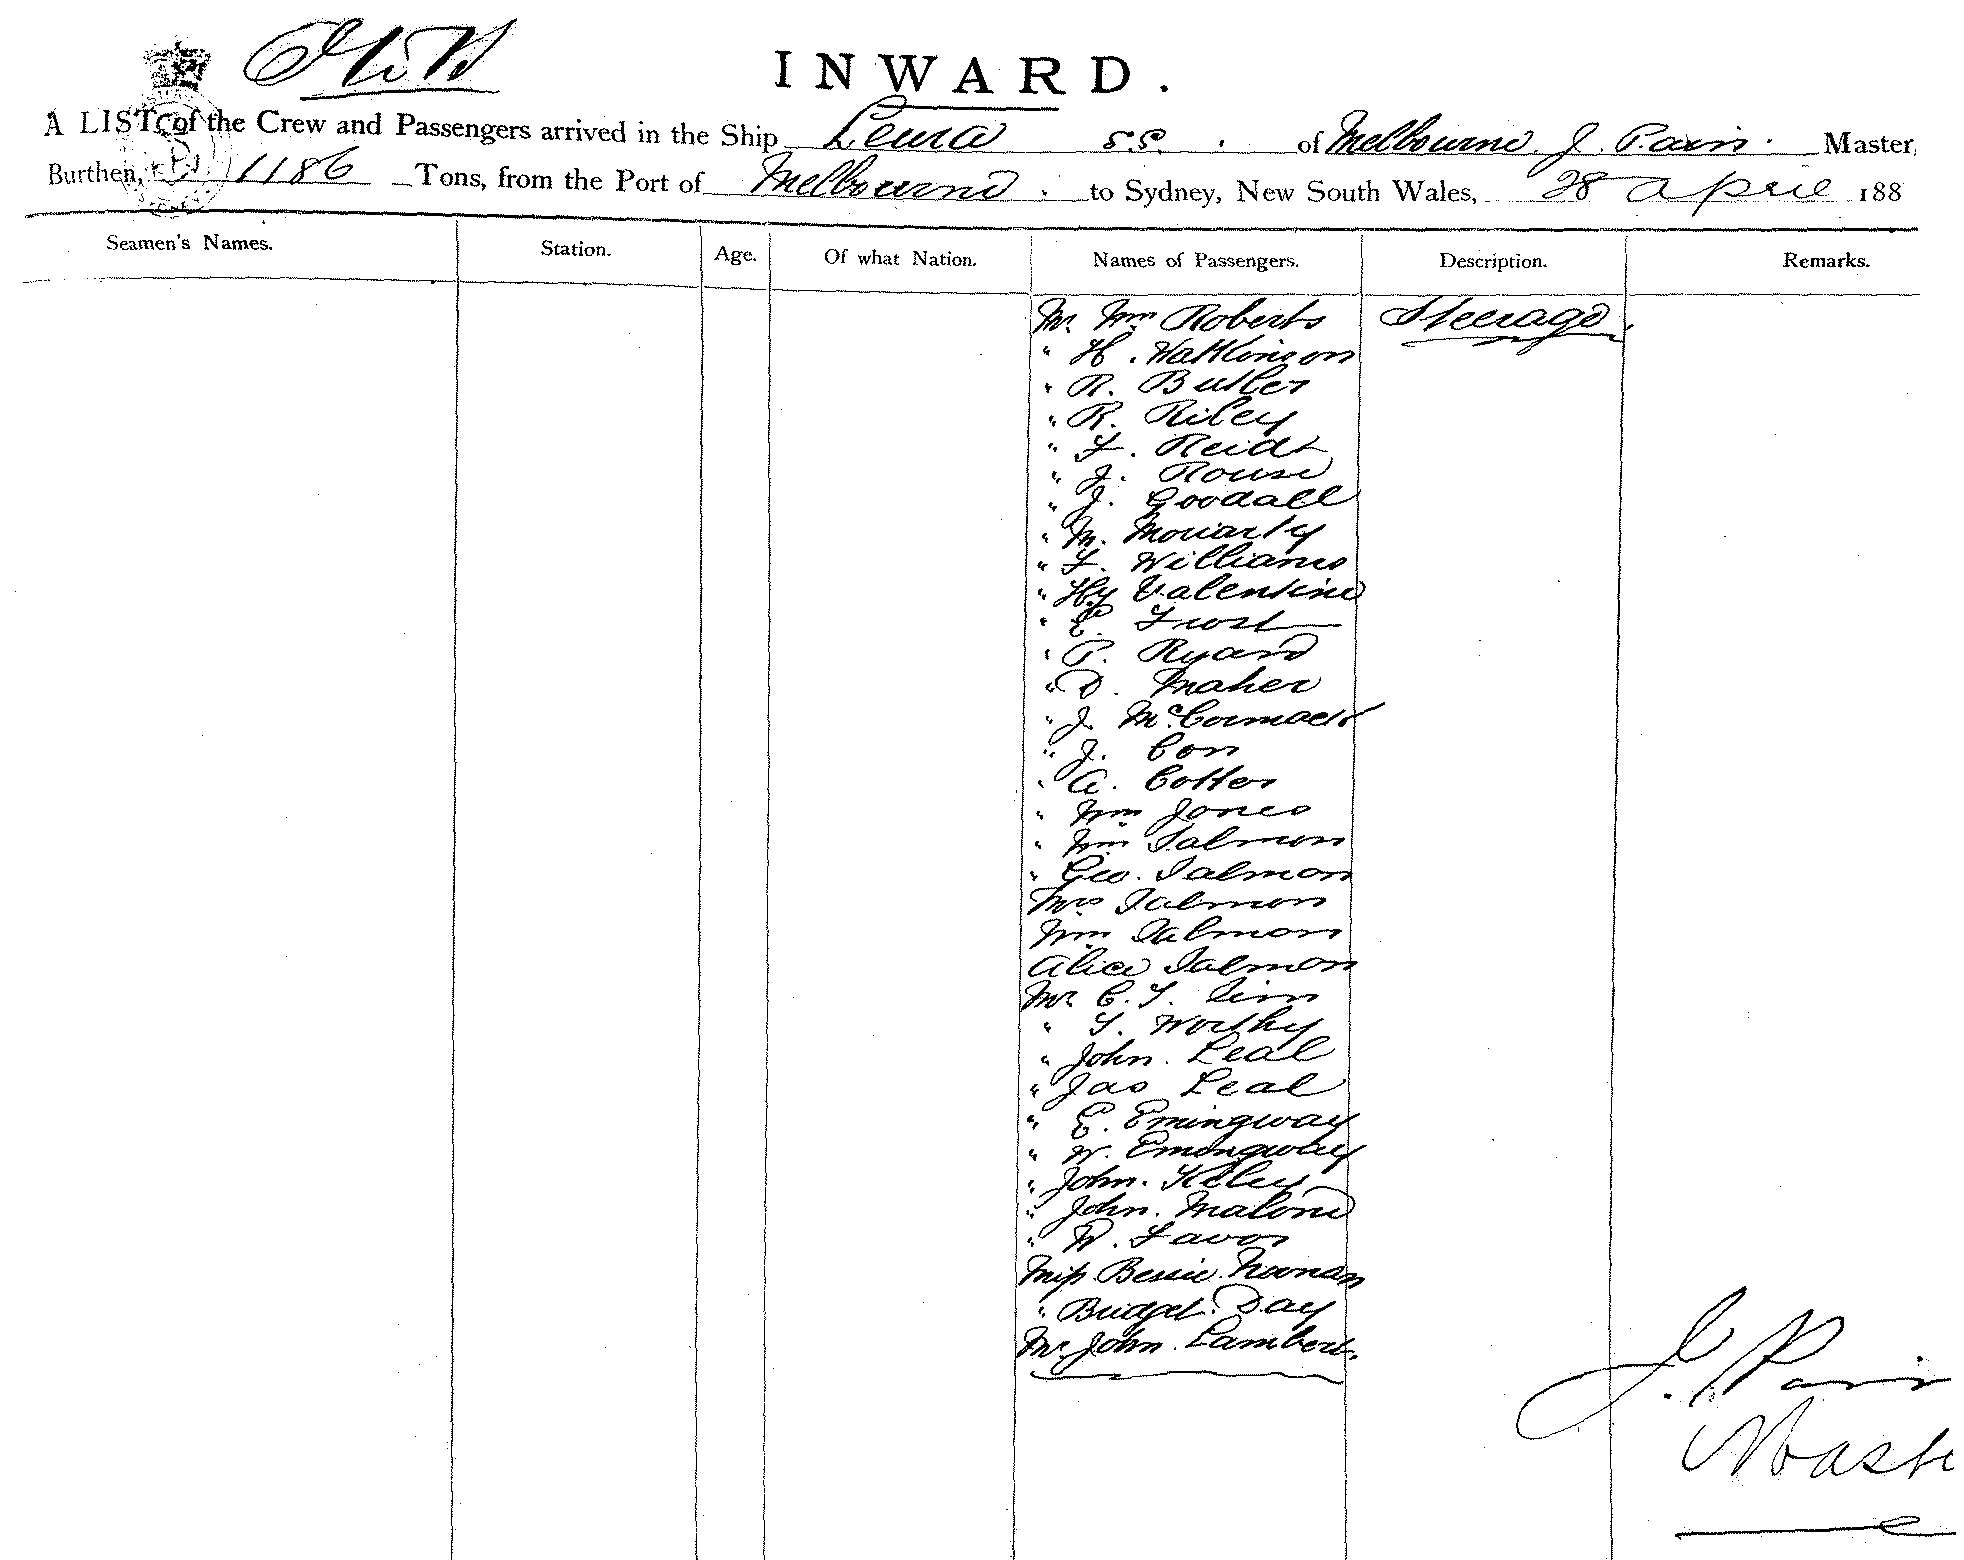 INWARD.
A LIST of the Crew and Passengers arrived in the Ship Leura s.s. of Melbourne J. Pain. Master,
Burthen, 1186 Tons, from the Port of Melbourne. to Sydney, New South Wales, 28 April 188
Seamen's Names. Station. Age. Of what Nation. Names of Passengers. Description. Remarks.
Mr. Wm Roberts Steerage.
" H. Watkinson
" R. Butler
" R. Riley
" F. Reidt
" J. Rouse
" J. Goodall
" M. Moriarty
" F. Williams
" Hy Valentine
" E. Frost
" P. Ryand
" D. Maher
" J. McCormack
" J. Con
" A. Cotter
" Wm Jones
" Wm Salmon
" Geo. Salmon
Mrs Salmon
Wm Salmon
Alice Salmon
Mr C. T. Sim
" T. Worthy
" John. Leal
" Jas Leal
" E. Emingway
" W. Emingway
" John. Kiley
" John. Malone
" W. Favor
Miss. Bessie. Noonan
" Bridget. Day
Mr. John. Lambert.
J. Pain
Maste